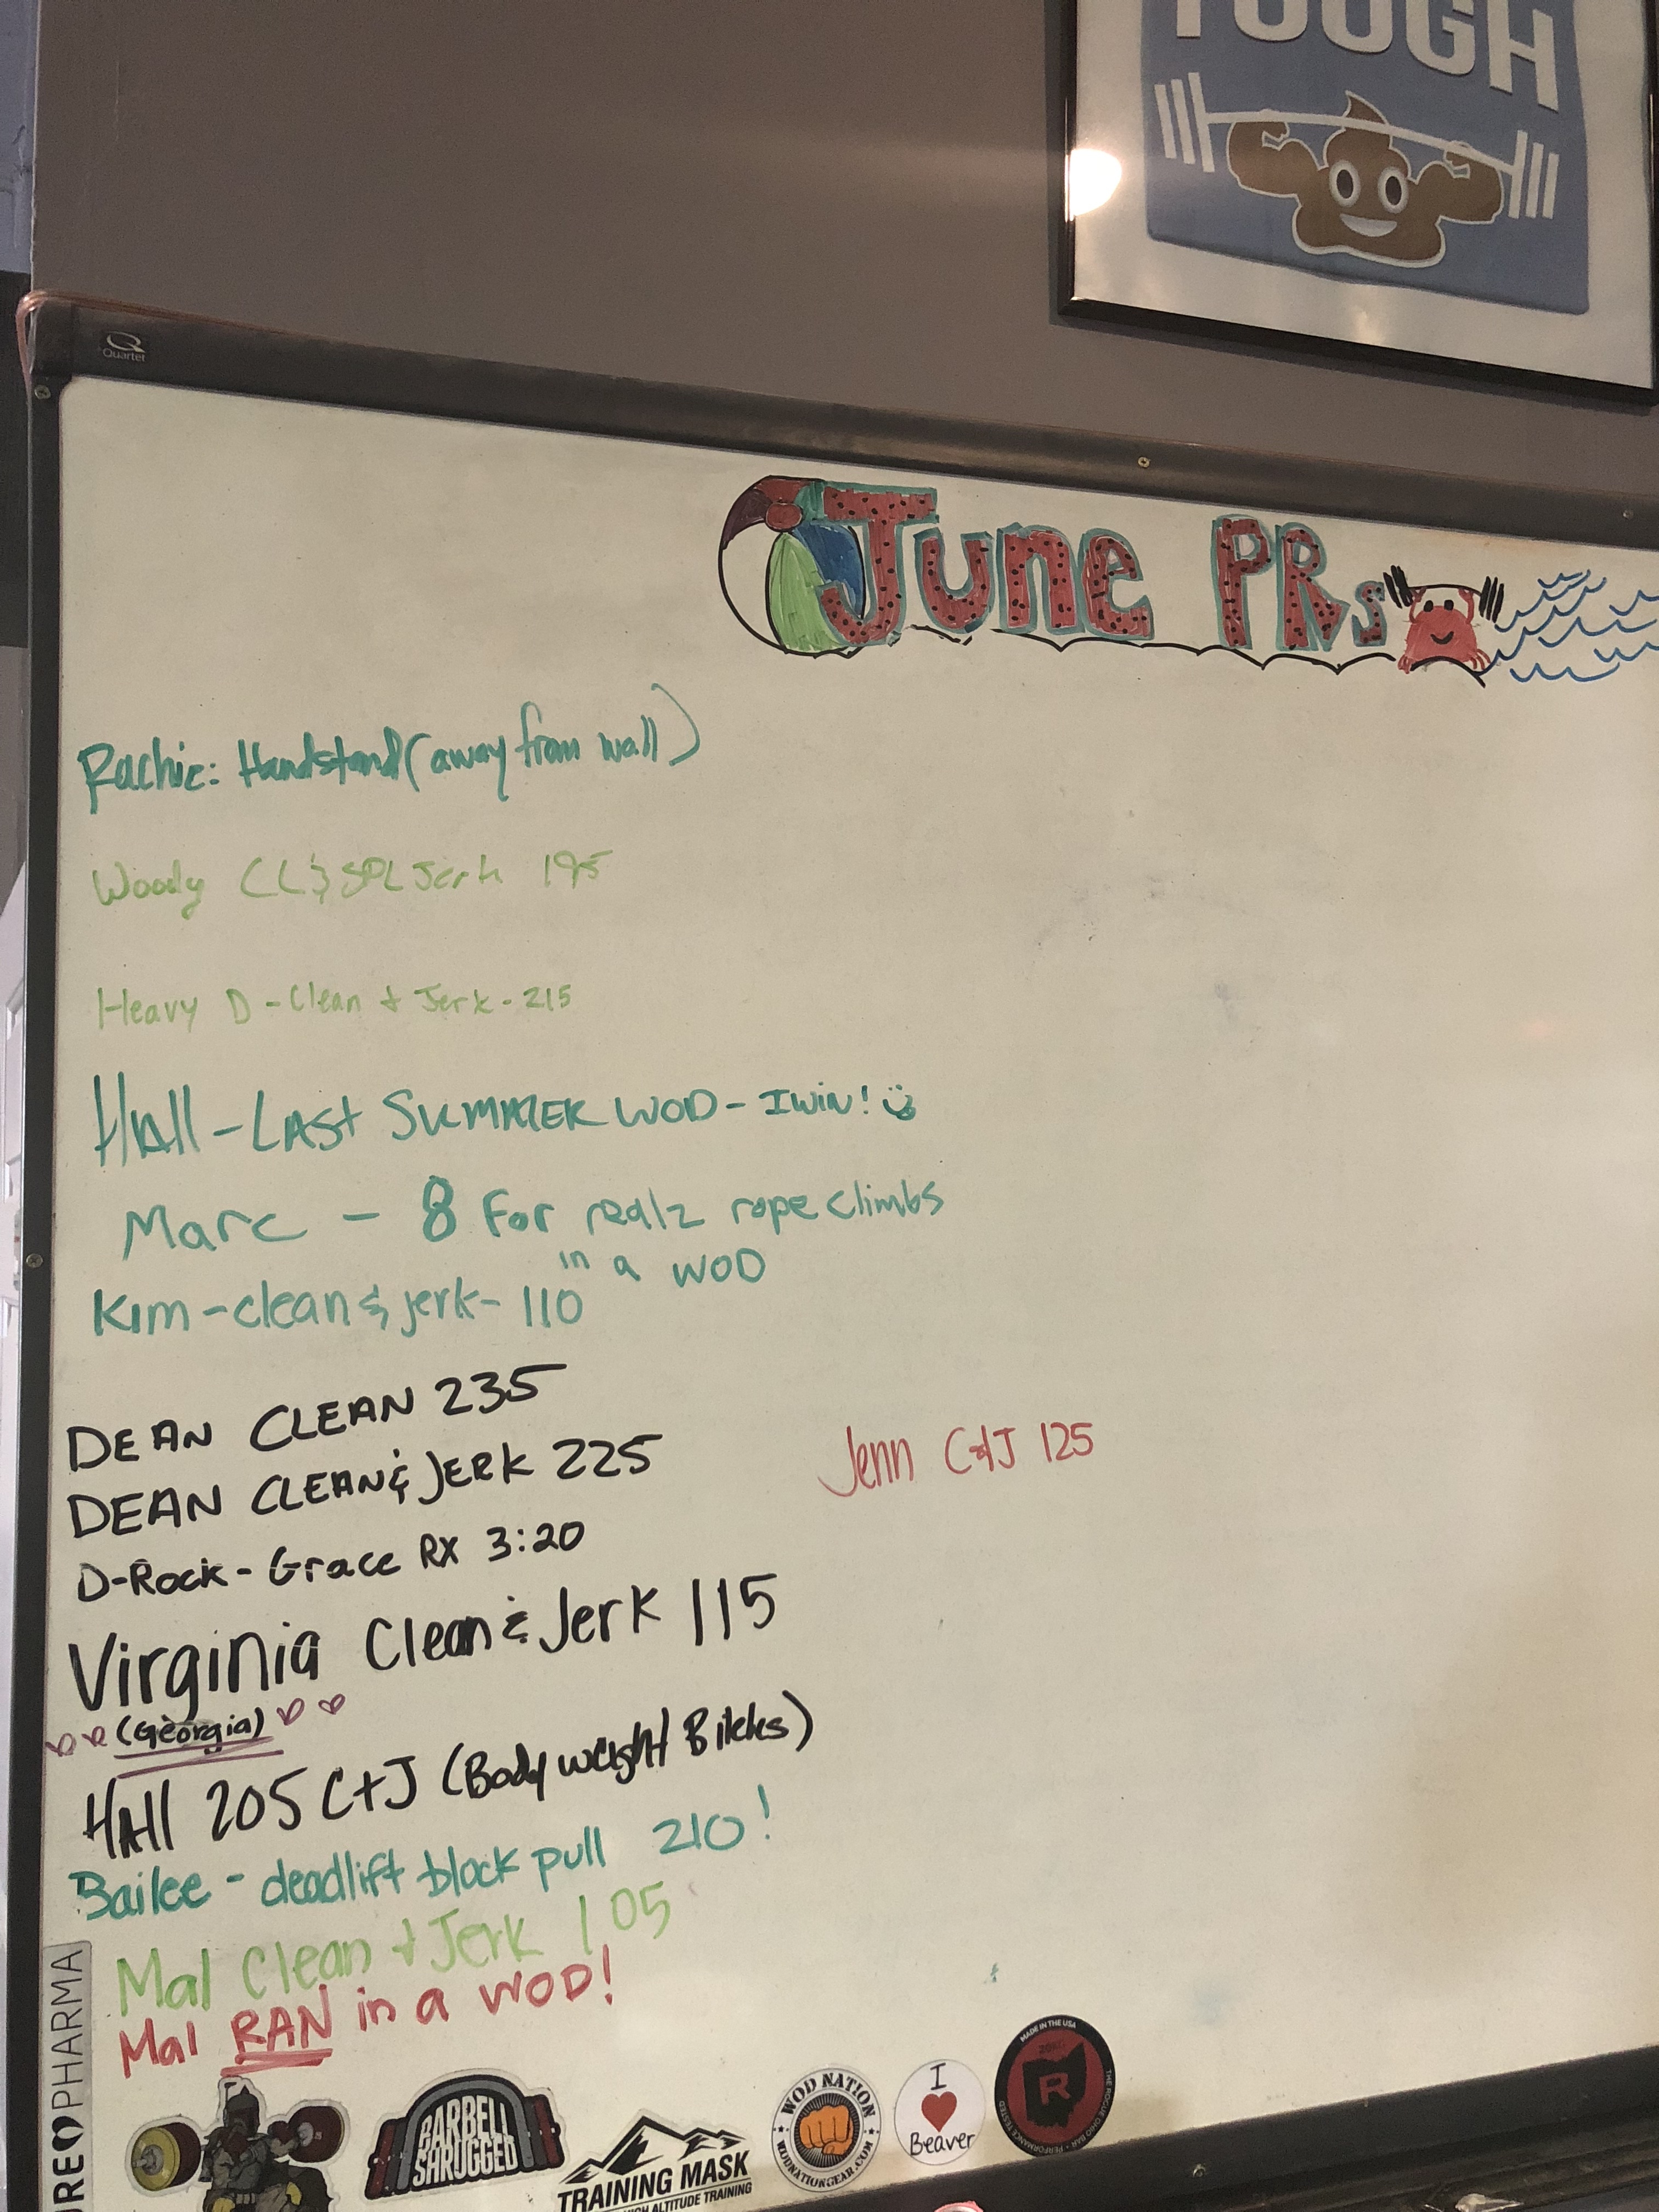 TOUGH
Quartet
June PRs
Rachie: Handstand (away from wall)
Woody CL & SPL Jerk 195
Heavy D - Clean + Jerk - 215
HAll - LAST SUMMER WOD - I WIN!
Marc - 8 For realz rope climbs
in a WOD
Kim - clean & jerk - 110
DEAN CLEAN 235
DEAN CLEAN & JERK 225
Jenn C+J 125
D-Rock - Grace RX 3:20
Virginia Clean & Jerk 115
(Georgia)
HAll 205 C+J (Body weight)
Bailee - deadlift block pull 210!
Mal Clean + Jerk 105
Mal RAN in a WOD!
PHARMA
BARBELL
SHRUGGED
TRAINING MASK
HIGH ALTITUDE TRAINING
WOD NATION
WODNATIONGEAR.COM
I
Beaver
MADE IN THE USA
R
THE ROGUE OHIO BAR • PERFORMANCE TESTED